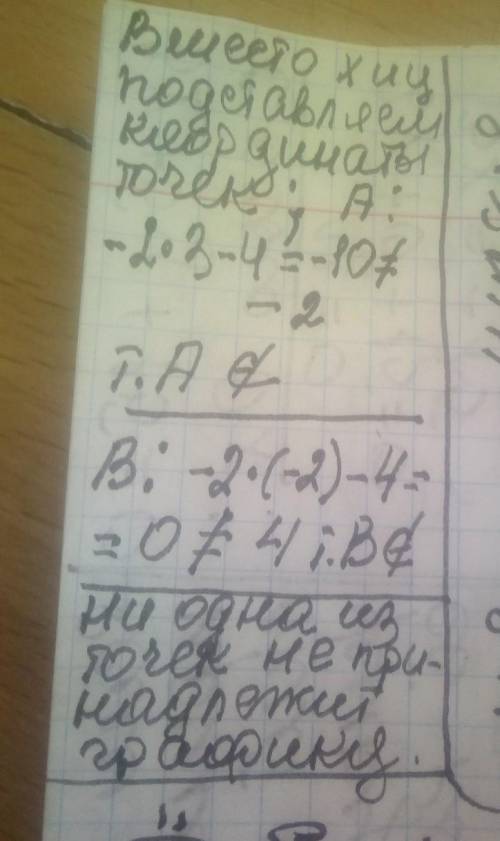 Вместо х и у
подставляем
координаты
точек; А:
-2·3-4=-10≠
-2
т.А ∉
В: -2·(-2)-4=
=0≠4 т.В∉
ни одна из
точек не при-
надлежит
графику.